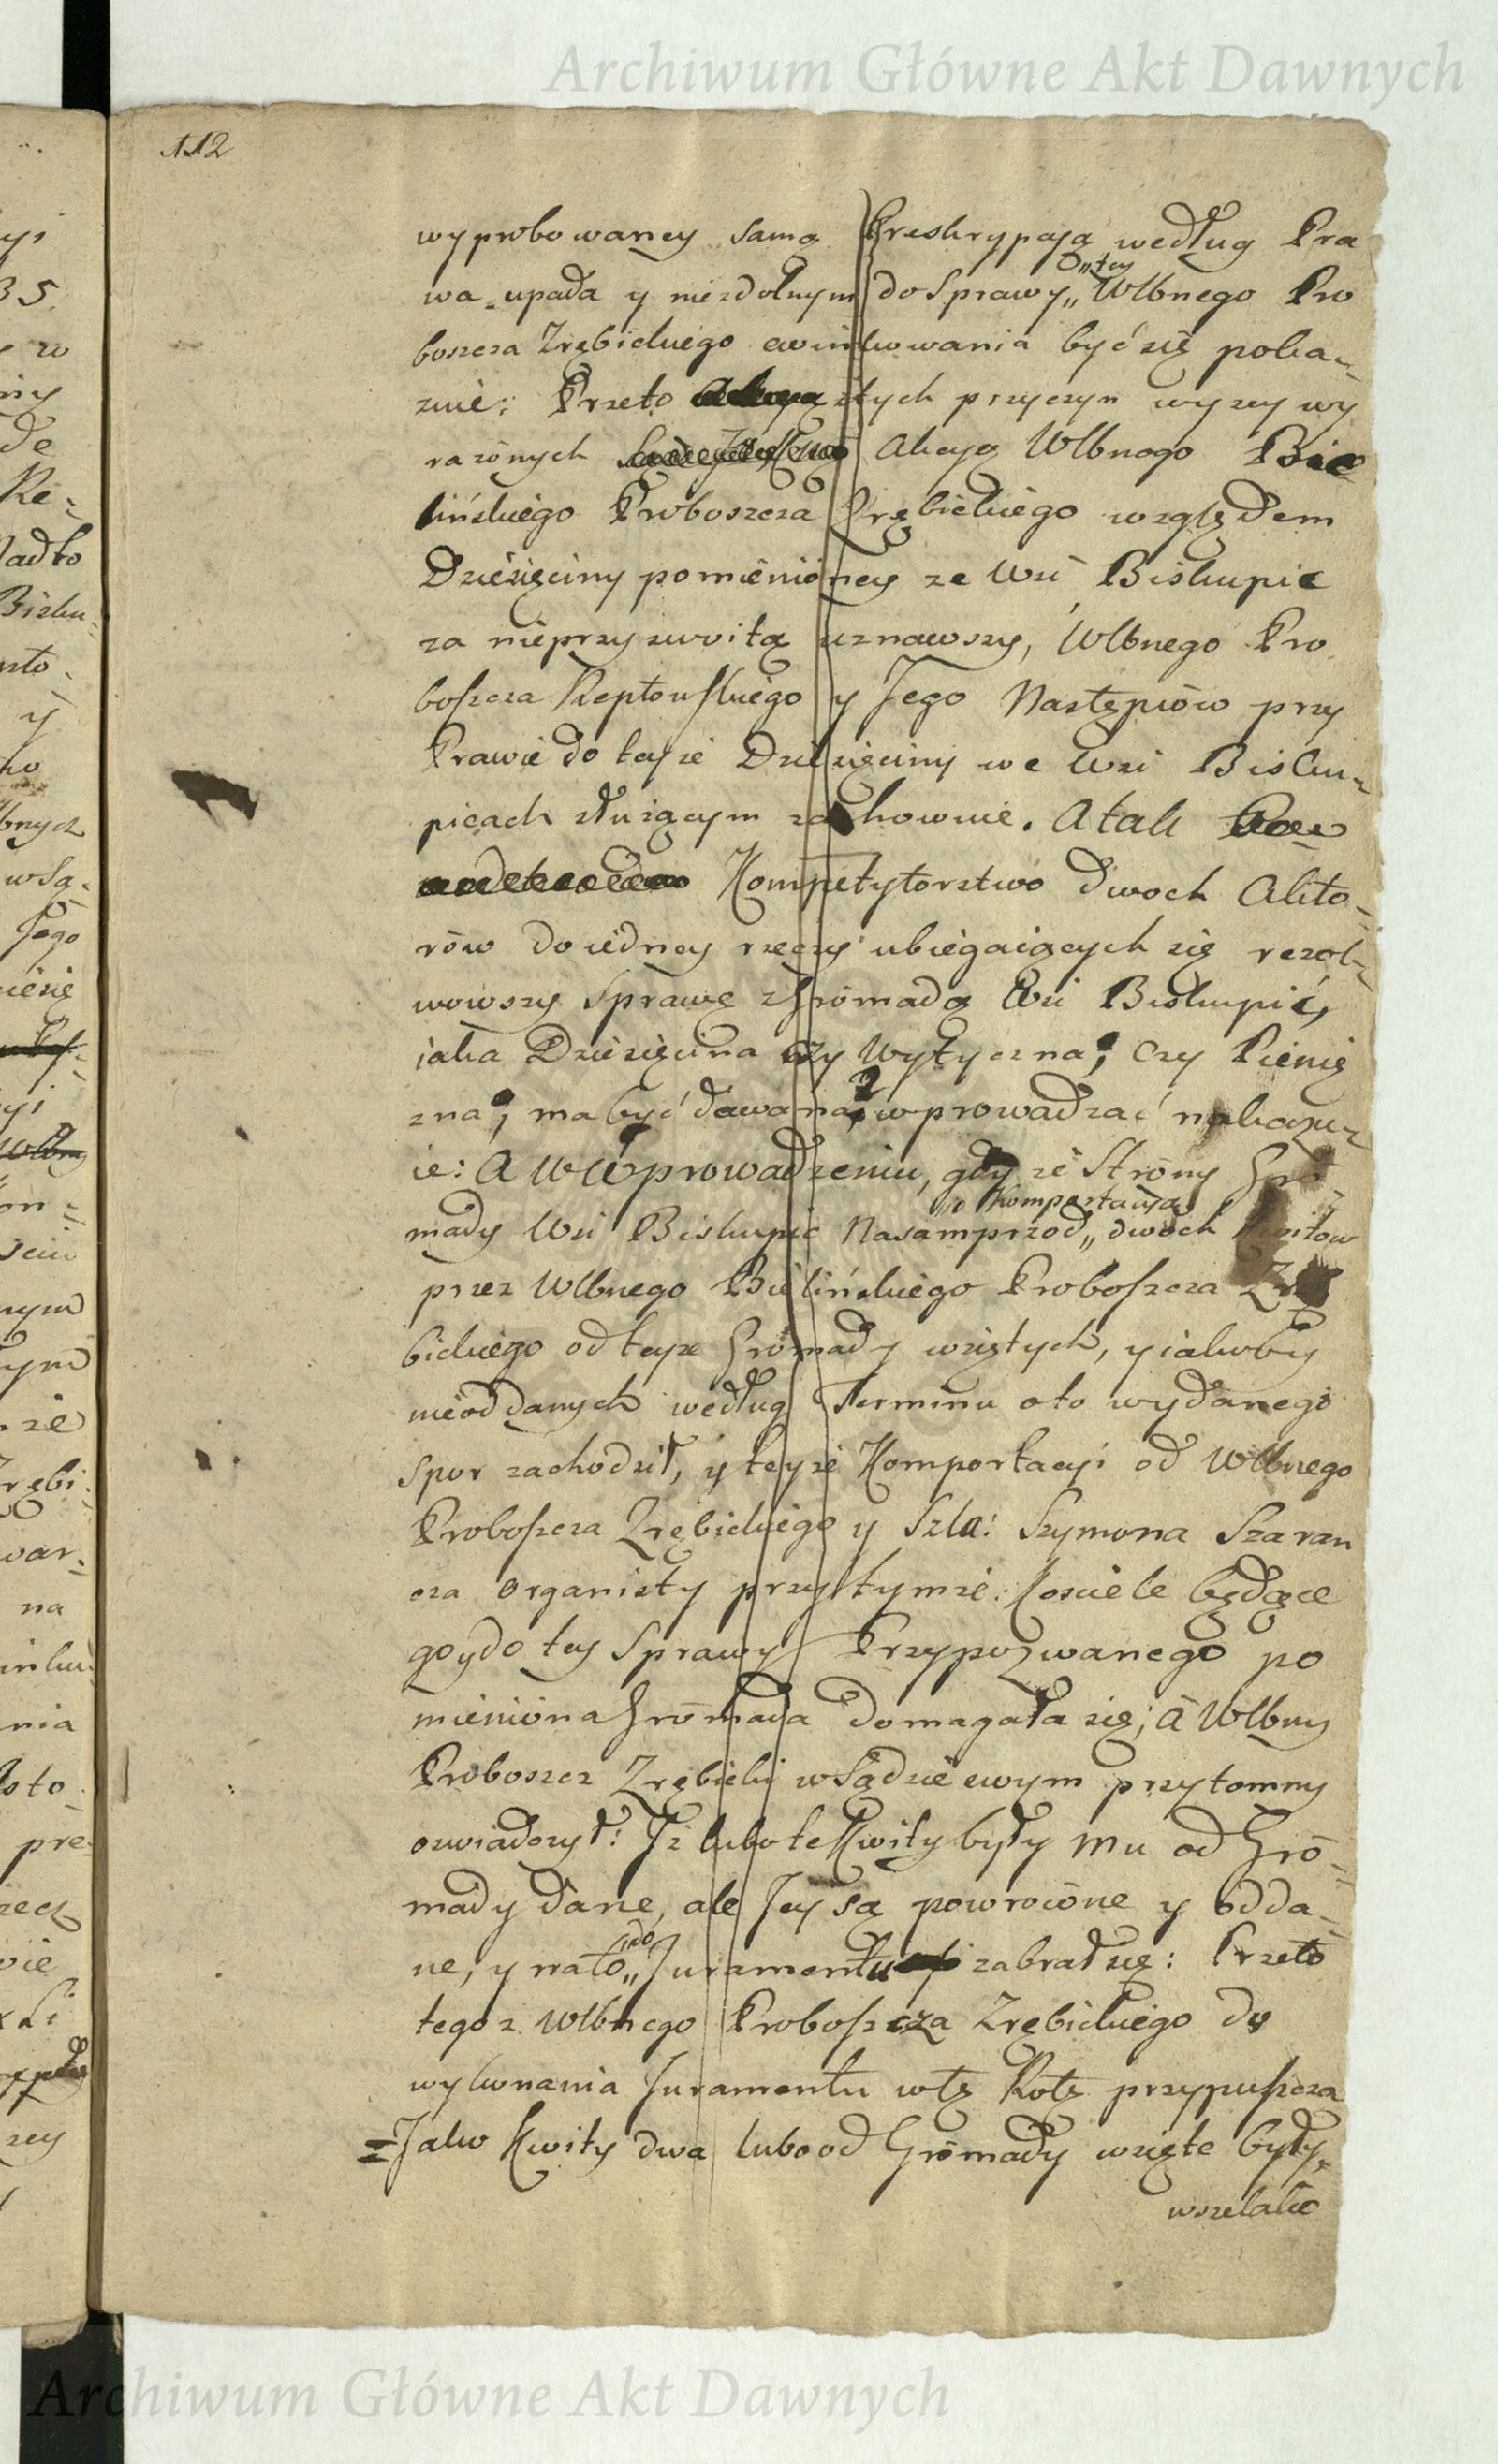 Archiwum Główne Akt Dawnych
112
wyprobowaney samą Preskrypcyą według Pra
wa upada y niezdolnym do Sprawy,, Wlbnego Pro
O,, tey
boszcza Zrębickiego ewinkowania być się poka=
zuie: Przeto z tych przyczyn wyzey wy
rażonych Akcyą Wlbnego Bie
lińskiego Proboszcza Zrębickiego względem
Dziesięciny pomienioney ze Wsi Biskupic
za nieprzyzwoitą uznawszy, Wlbnego Pro
boszcza Reptowskiego y Jego Następców przy
Prawie do teyże Dziesięciny we Wsi Bisku=
picach służącym zachowuie. A tak
Kompetytorstwo dwoch Akto=
rów do iedney rzeczy ubiegaiących się rezol=
wowszy Sprawę z Gromadą Wsi Biskupic,
iaka Dziesięcina czy Wytyczna, czy Pienię
zna, ma być dawana, wprowadzać nakazu=
ie: A w wprowadzeniu, gdy ze Strony Gro=
mady Wsi Biskupic Nasamprzod,, dwoch Kwitow
o Komportacyą
przez Wlbnego Bielińskiego Proboszcza Zrę
bickiego od teyze Gromady wziętych, y iakoby
nieoddanych według Terminu oto wydanego
spor zachodził, y teyże Komportacyi od Wlbnego
Proboszcza Zrębickiego y Szla: Szymona Szaran
cza Organisty przy tymże Kościele będące
go y do tey Sprawy Przypozwanego po
mieniona Gromada domagała się; A Wlbny
Proboszcz Zrębicki w Sądzie swym przytomny
oswiadczył: Iz lubo te Kwity były mu od Gro=
mady dane, ale Jey są powrocone y odda=
ne, y na to,, Juramentu zabrał się: Przeto
do
tegoz Wlbnego Proboszcza Zrębickiego do
wykonania Juramentu w tę Rotę przypuszcza
=Jako Kwity dwa lubo od Gromady wzięte były,
wszelako
Archiwum Główne Akt Dawnych